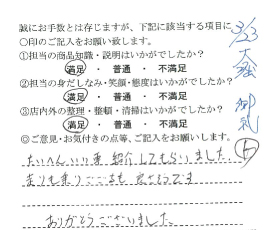 誠にお手数とは存じますが、下記に該当する項目に
○印のご記入をお願い致します。
①担当の商品知識・説明はいかがでしたか？
満足 ・ 普通 ・ 不満足
②担当の身だしなみ・笑顔・態度はいかがでしたか？
満足 ・ 普通 ・ 不満足
③店内外の整理・整頓・清掃はいかがでしたか？
満足 ・ 普通 ・ 不満足
◎ご意見・お気付きの点等、ご記入をお願いします。
たいへんいい車 紹介してもらいました
とても乗りごこちも 良さそうです
ありがとうございました
3/23